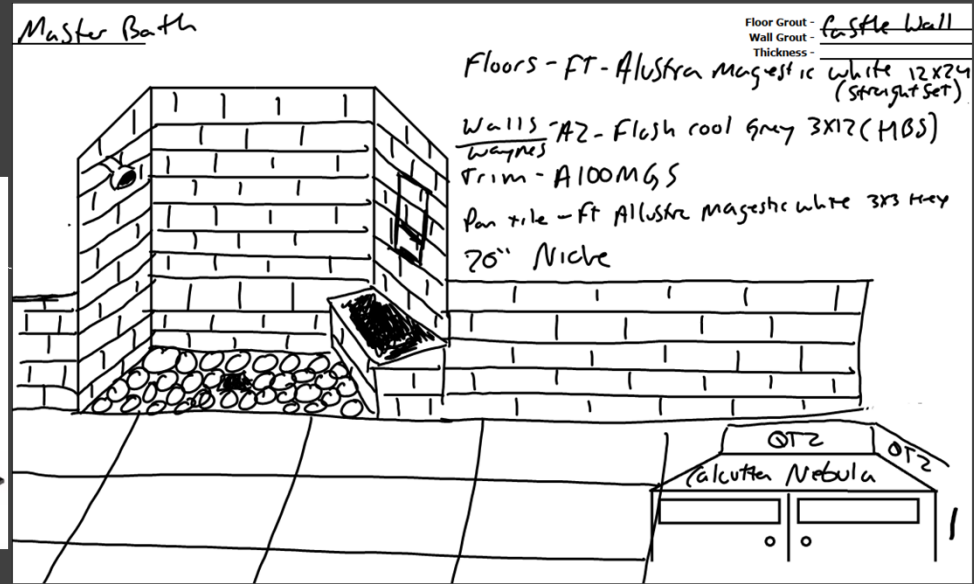 Master Bath
Floor Grout - Castle Wall
Wall Grout -
Thickness -
Floors - FT - Alustra Magestic white 12x24
(straight set)
Walls - AZ - Flash cool Grey 3X12 (HBS)
waynes
Trim - A100MGS
Pan tile - Ft Allustra Magestic white 3x3 Hex
20" Niche
QTZ
QTZ
Calcutta Nebula